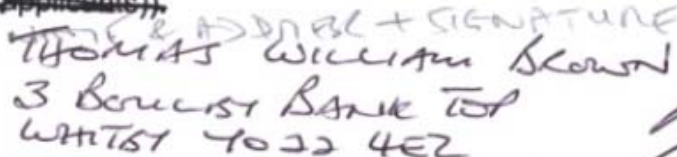 applicant(s)).
NAME & ADDRESS + SIGNATURE
THOMAS WILLIAM BROWN
3 BOULBY BANK TOP
WHITBY YO22 4EZ